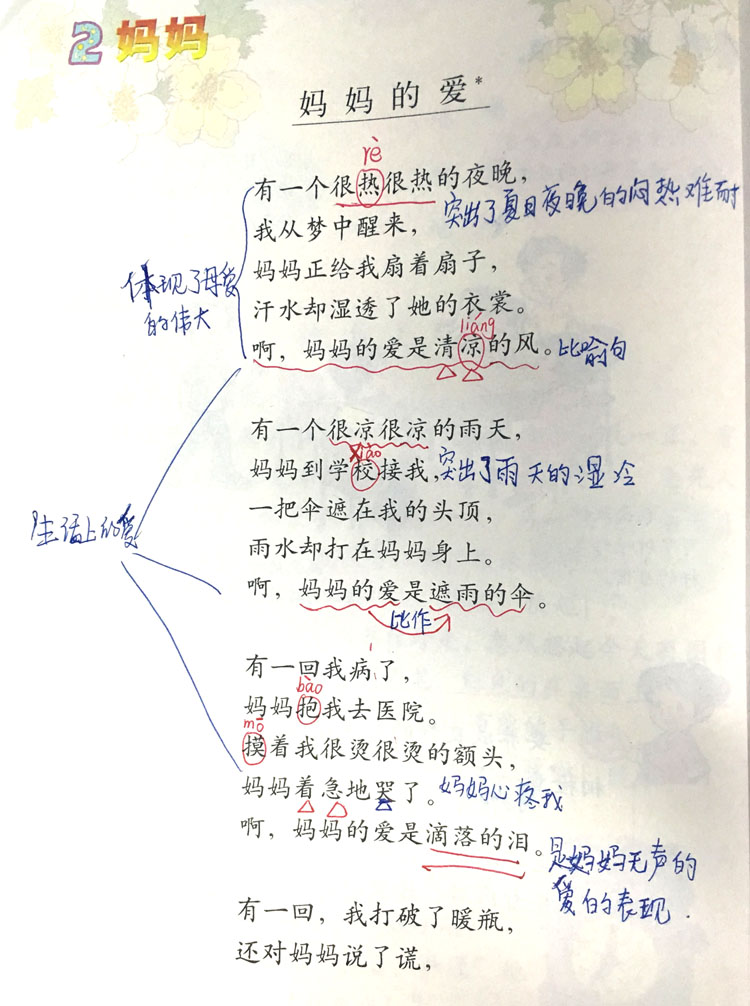 2 妈妈
妈妈的爱*
rè
有一个很热很热的夜晚，
突出了夏日夜晚的闷热难耐
我从梦中醒来，
妈妈正给我扇着扇子，
体现了母爱
的伟大
汗水却湿透了她的衣裳。
liáng
啊，妈妈的爱是清凉的风。比喻句
有一个很凉很凉的雨天，
xiào
妈妈到学校接我，突出了雨天的湿冷
一把伞遮在我的头顶，
生活上的爱
雨水却打在妈妈身上。
啊，妈妈的爱是遮雨的伞。
比作
有一回我病了，
bào
妈妈抱我去医院。
mō
摸着我很烫很烫的额头，
妈妈着急地哭了。妈妈心疼我
啊，妈妈的爱是滴落的泪。
是妈妈无声的
爱的表现.
有一回，我打破了暖瓶，
还对妈妈说了谎，